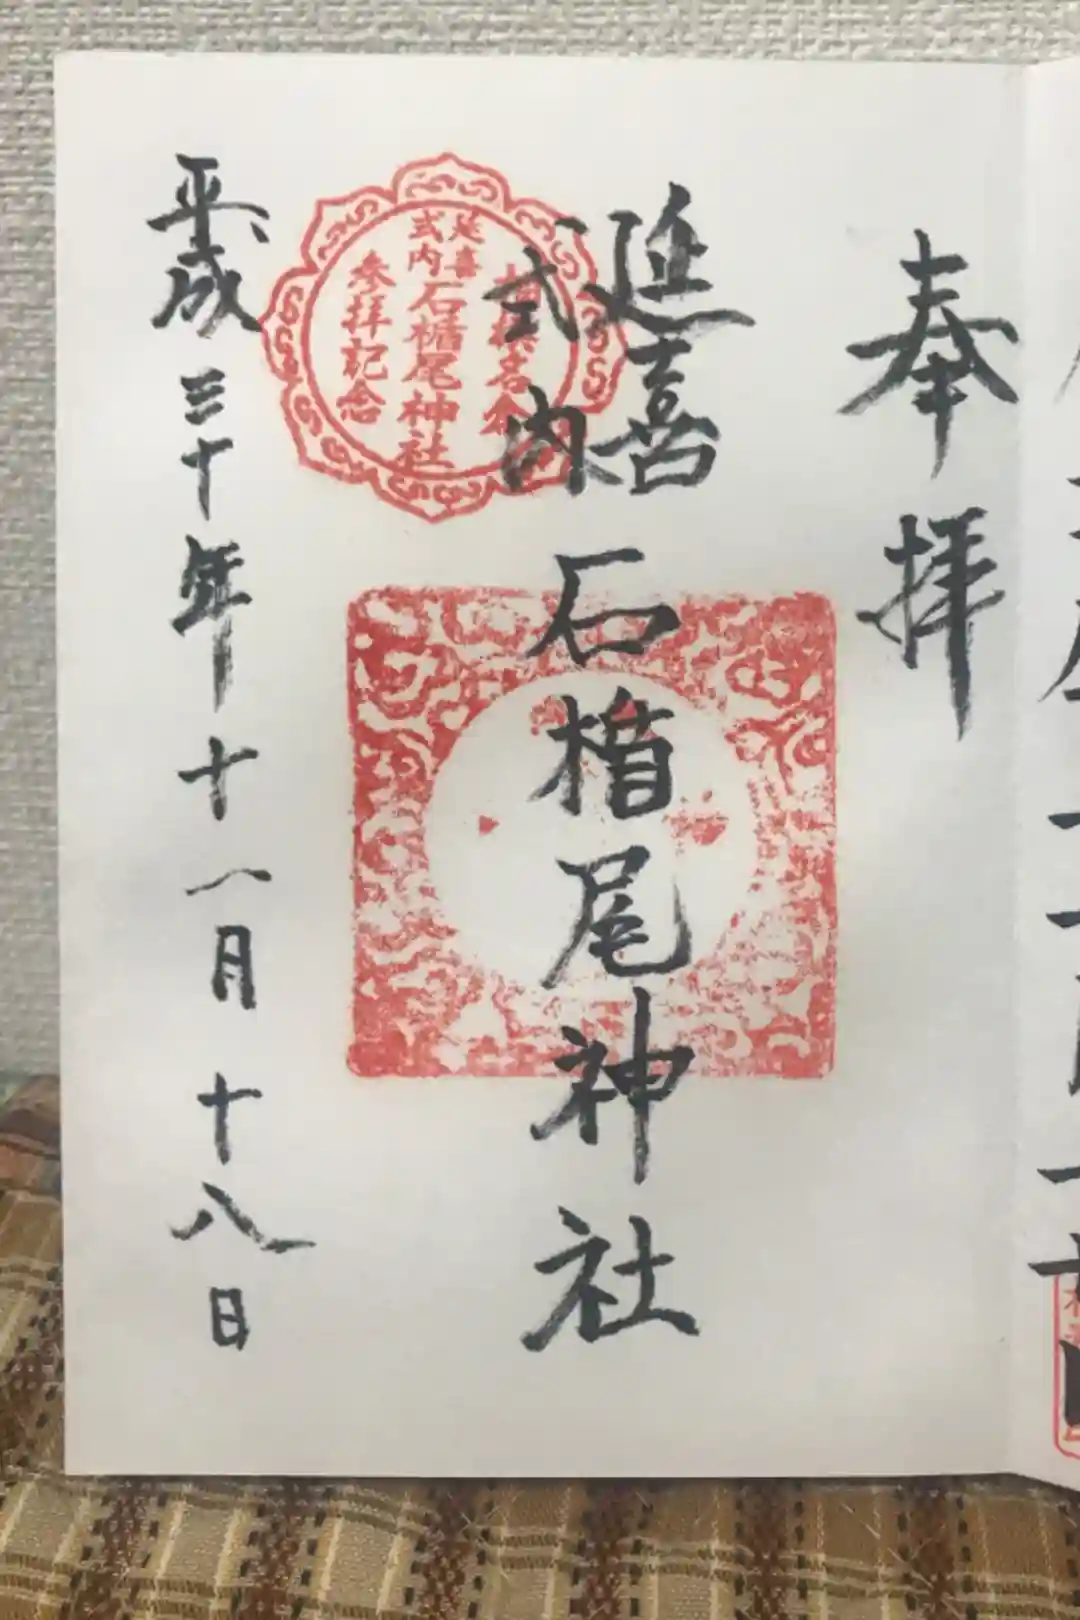 奉拝
延喜
式内
石楯尾神社
相模名倉
延喜
式内
石楯尾神社
参拝記念
平成三十年十一月十八日